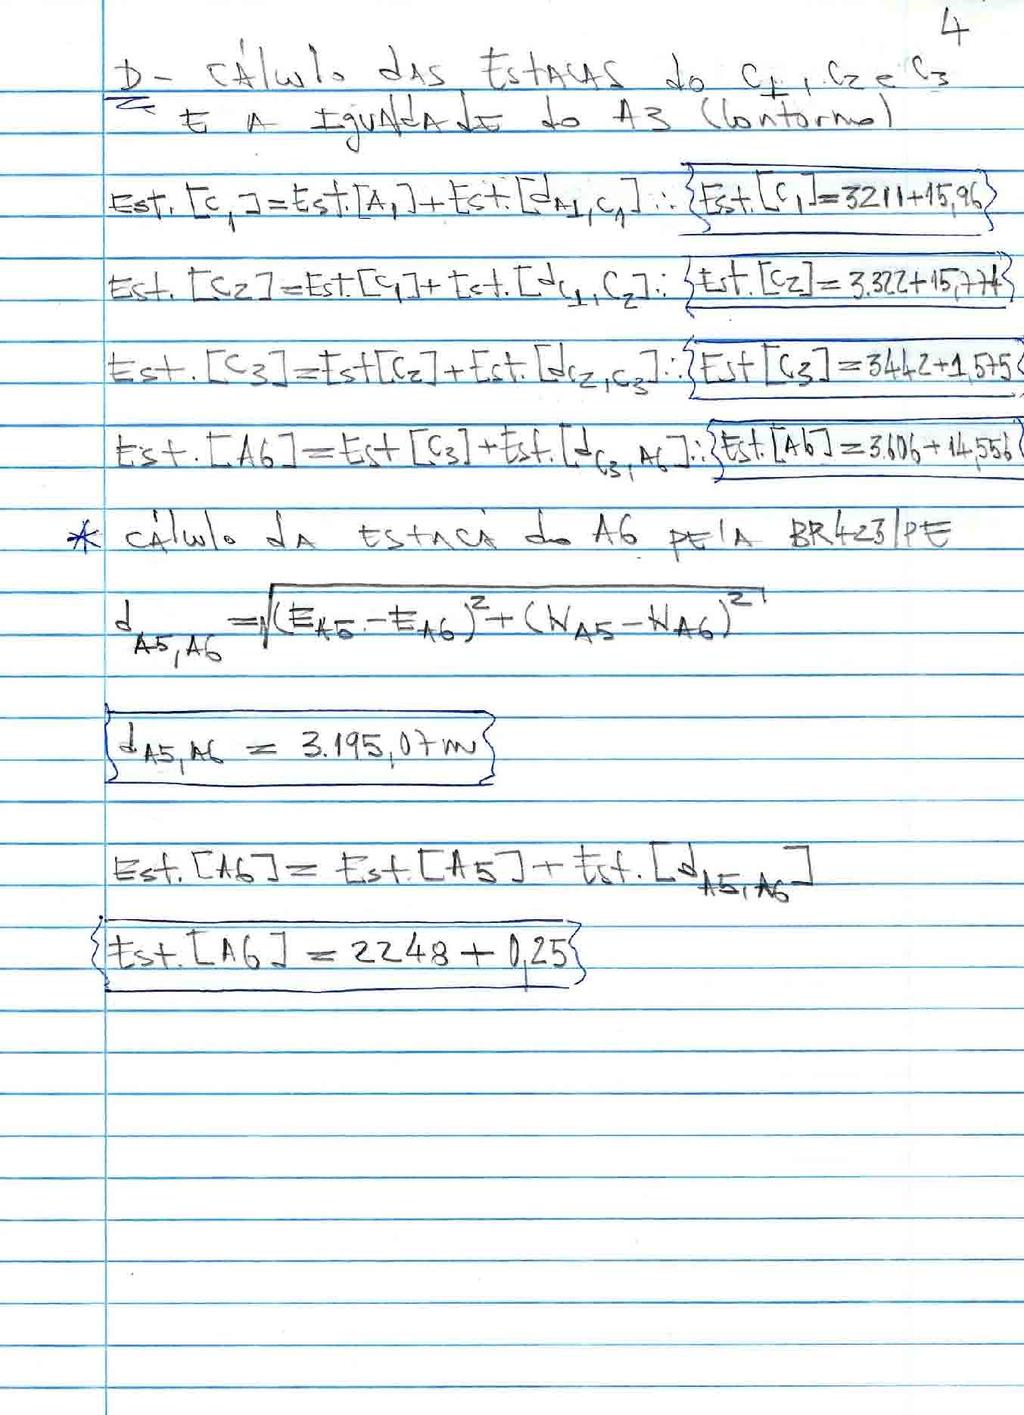 4
D - Cálculo das Estacas do C1, C2 e C3
E A Igualdade do A3 (Contorno)
Est. [C1] = Est. [A1] + Est. [dA1,C1] ∴ {Est. [C1] = 3211+15,96}
Est. [C2] = Est [C1] + Est. [dC1,C2] ∴ {Est. [C2] = 3.322+15,774}
Est. [C3] = Est [C2] + Est. [dC2,C3] ∴ {Est [C3] = 3442+1,575}
Est. [A6] = Est [C3] + Est. [dC3,A6] ∴ {Est. [A6] = 3.606+14,556}
* Cálculo da Estaca do A6 pela BR423/PE
dA5,A6 = √(EA5 - EA6)² + (NA5 - NA6)²
{dA5,A6 = 3.195,07m}
Est. [A6] = Est. [A5] + Est. [dA5,A6]
{Est. [A6] = 2248 + 0,25}